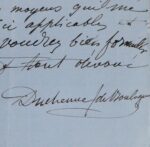 moyens qu'il me
ici applicables
voudrez bien
et tout dévoué
Duchenne (de Boulogne